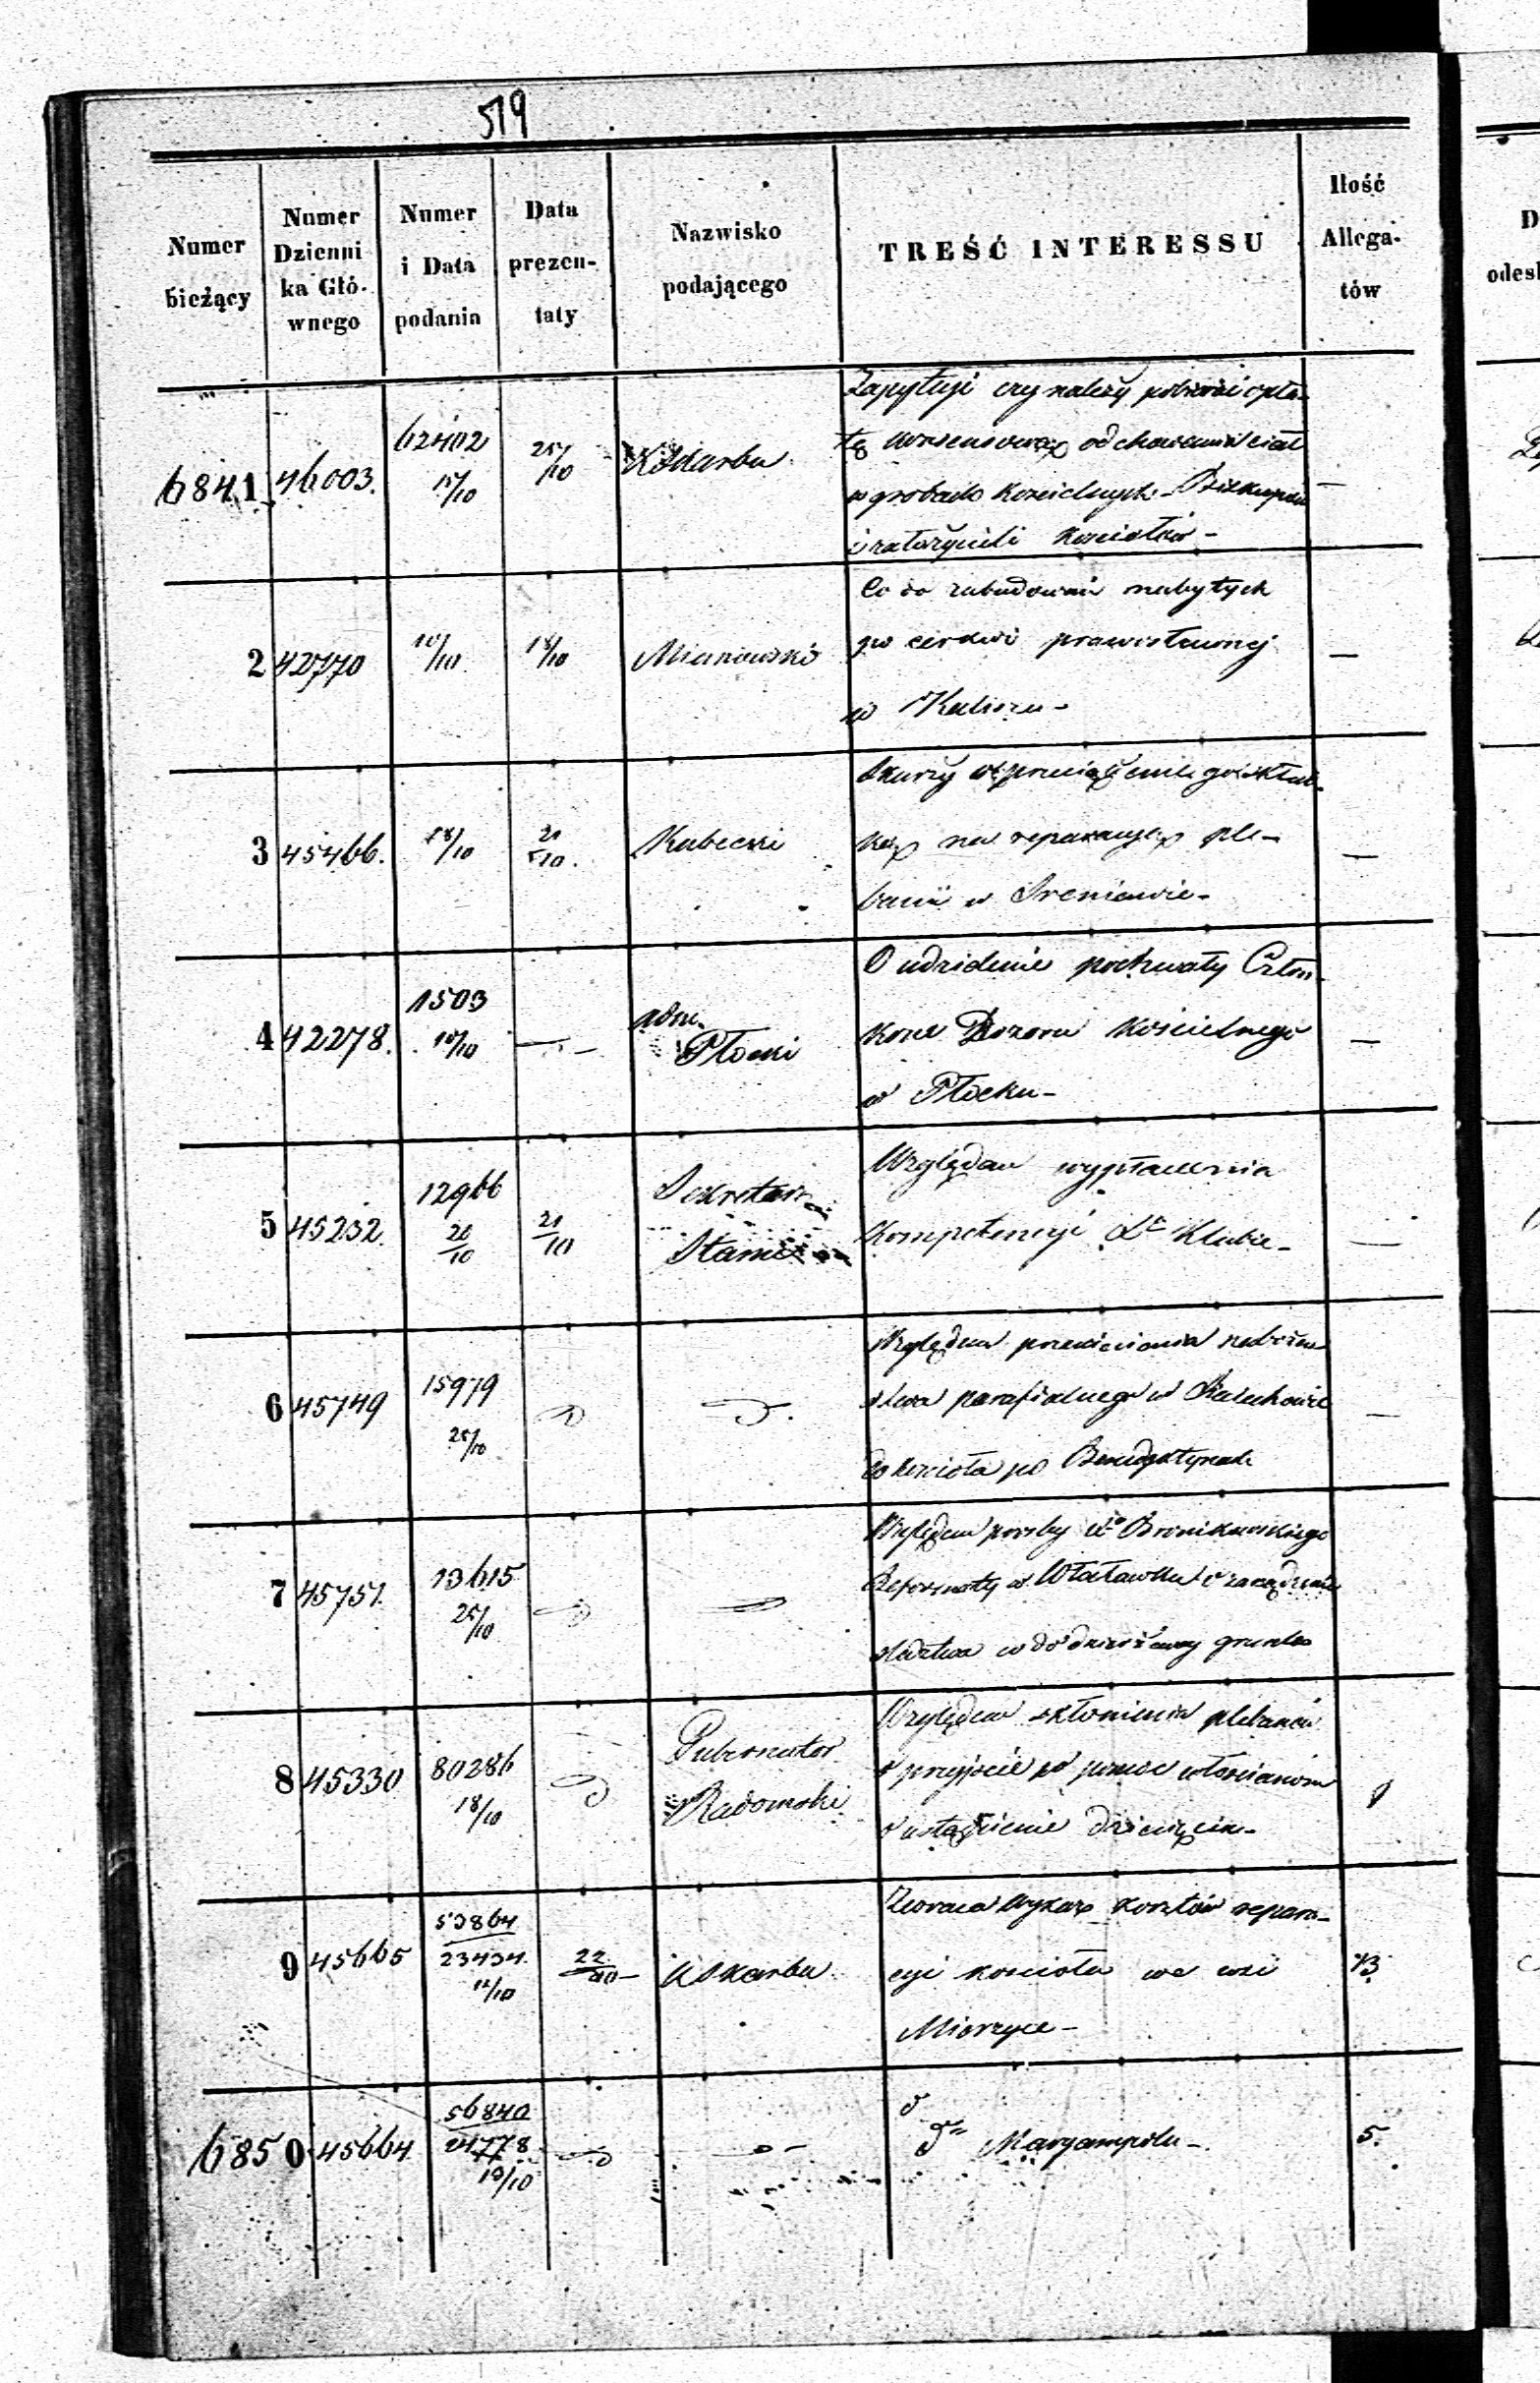 519
Numer bieżący
Numer Dzienni ka Głó- wnego
Numer i Data podania
Data prezen- taty
Nazwisko podającego
TREŚĆ INTERESSU
Ilość Allega- tów
D
odesł
6841 46003. 62402 15/10 25/10 K Skarbu
Zapytuje czy należy pobierać opła-
tę konsensową od chowania ciał
w grobach kościelnych Biskupów
i założycieli kościołów -
—
2 42770 10/10 18/10 Mianowski
Co do zabudowań nabytych
po cerkwi prawosławnej
w Kaliszu -
—
3 45466. 18/10 21/10. Kubecki
Skarży o
na reparacyę ple-
banii w
—
4 42278. 1503 10/10 — adm. Płocki
O udzielenie pochwały Człon-
Dozoru Kościelnego
w Płocku -
—
5 45232. 12966 20/10 21/10 Sekretarz Stanu
Względem wypłacenia
kompetencyi Xa
—
6 45749 15979 25/10
Względem przeniesienia nabożeń
stwa parafialnego w
do kościoła po Benedyktynach
—
7 45751. 13615 25/10
Względem prośby Bronikowskiego
Reformaty w o zarządzenie
śledztwa
8 45330 80286 18/10 Gubernator Radomski
Względem skłonienia plebanów
o przyjście w pomoc włościanom
o ustąpienie dziesięcin -
9 45665 53864 23434. 12/10 22/10 - K Skarbu
Zwraca wykaz kosztów repara-
cyi kościoła we wsi
Mierzyce -
13
6850 45664 56840 24778 19/10
do Maryampolu -
5.